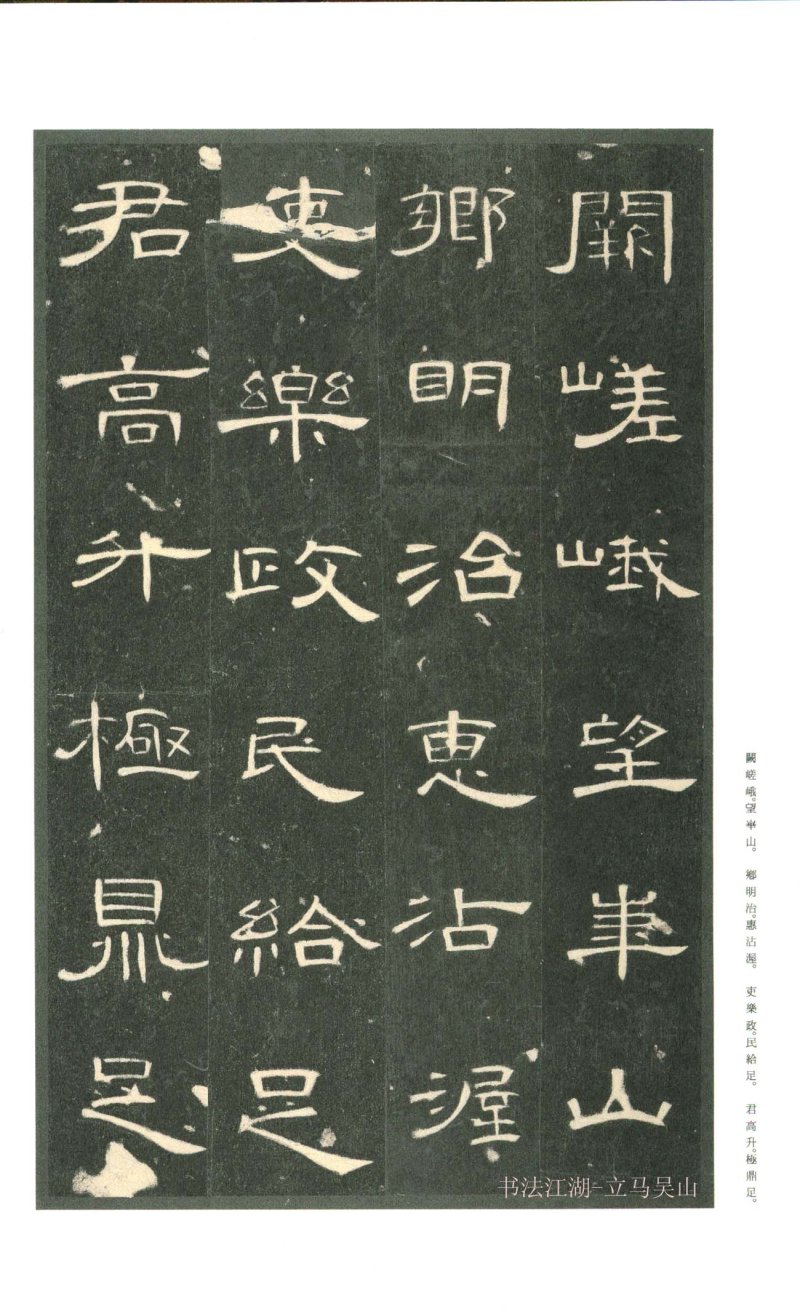 闕嵯峨望崋山
鄉明治惠沾渥
吏樂政民給足
君高升極鼎足
闕嵯峨。望崋山。 鄉明治。惠沾渥。 吏樂政。民給足。 君高升。極鼎足。
书法江湖-立马吴山